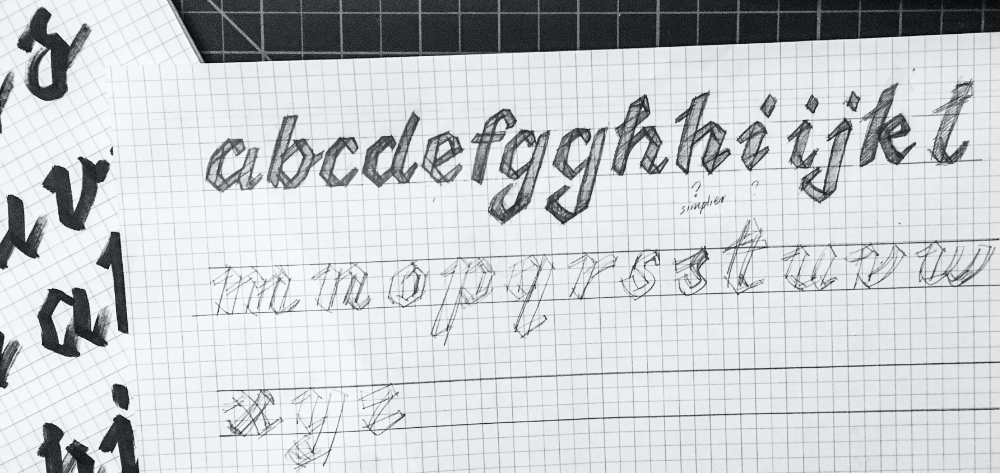 abcdefgghhiijkl
? ?
simplier
mnopqrsstuvw
xyz
s
v
a